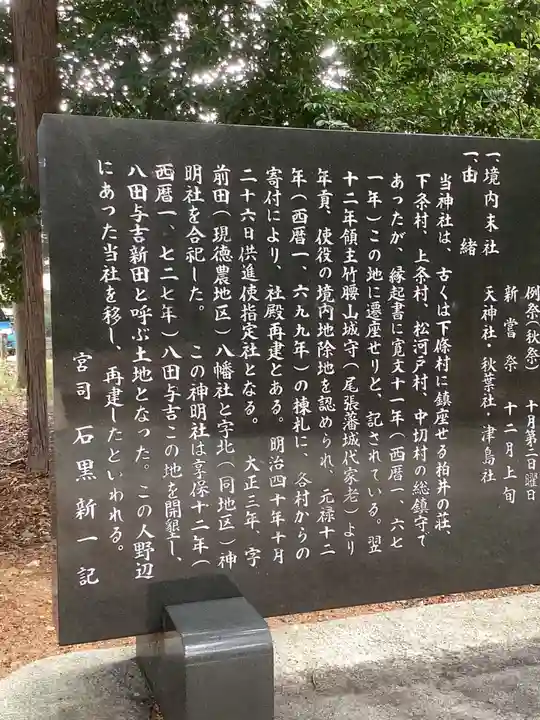 例祭(秋祭) 十月第二日曜日
新嘗祭 十二月上旬
一、境内末社 天神社・秋葉社・津島社
一、由緒
当神社は、古くは下條村に鎮座せる柏井の荘、
下条村、上条村、松河戸村、中切村の総鎮守で
あったが、縁起書に寛文十一年(西暦一、六七
一年)この地に遷座せりと、記されている。翌
十二年領主竹腰山城守(尾張藩城代家老)より
年貢、使役の境内地除地を認められ、元禄十二
年(西暦一、六九九年)の棟札に、各村からの
寄付により、社殿再建とある。明治四十年十月
二十六日供進使指定社となる。 大正三年、字
前田(現徳農地区)八幡社と字北(同地区)神
明社を合祀した。 この神明社は享保十二年(
西暦一、七二七年)八田与吉この地を開墾し、
八田与吉新田と呼ぶ土地となった。この人野辺
にあった当社を移し、再建したといわれる。
宮司 石黒新一記